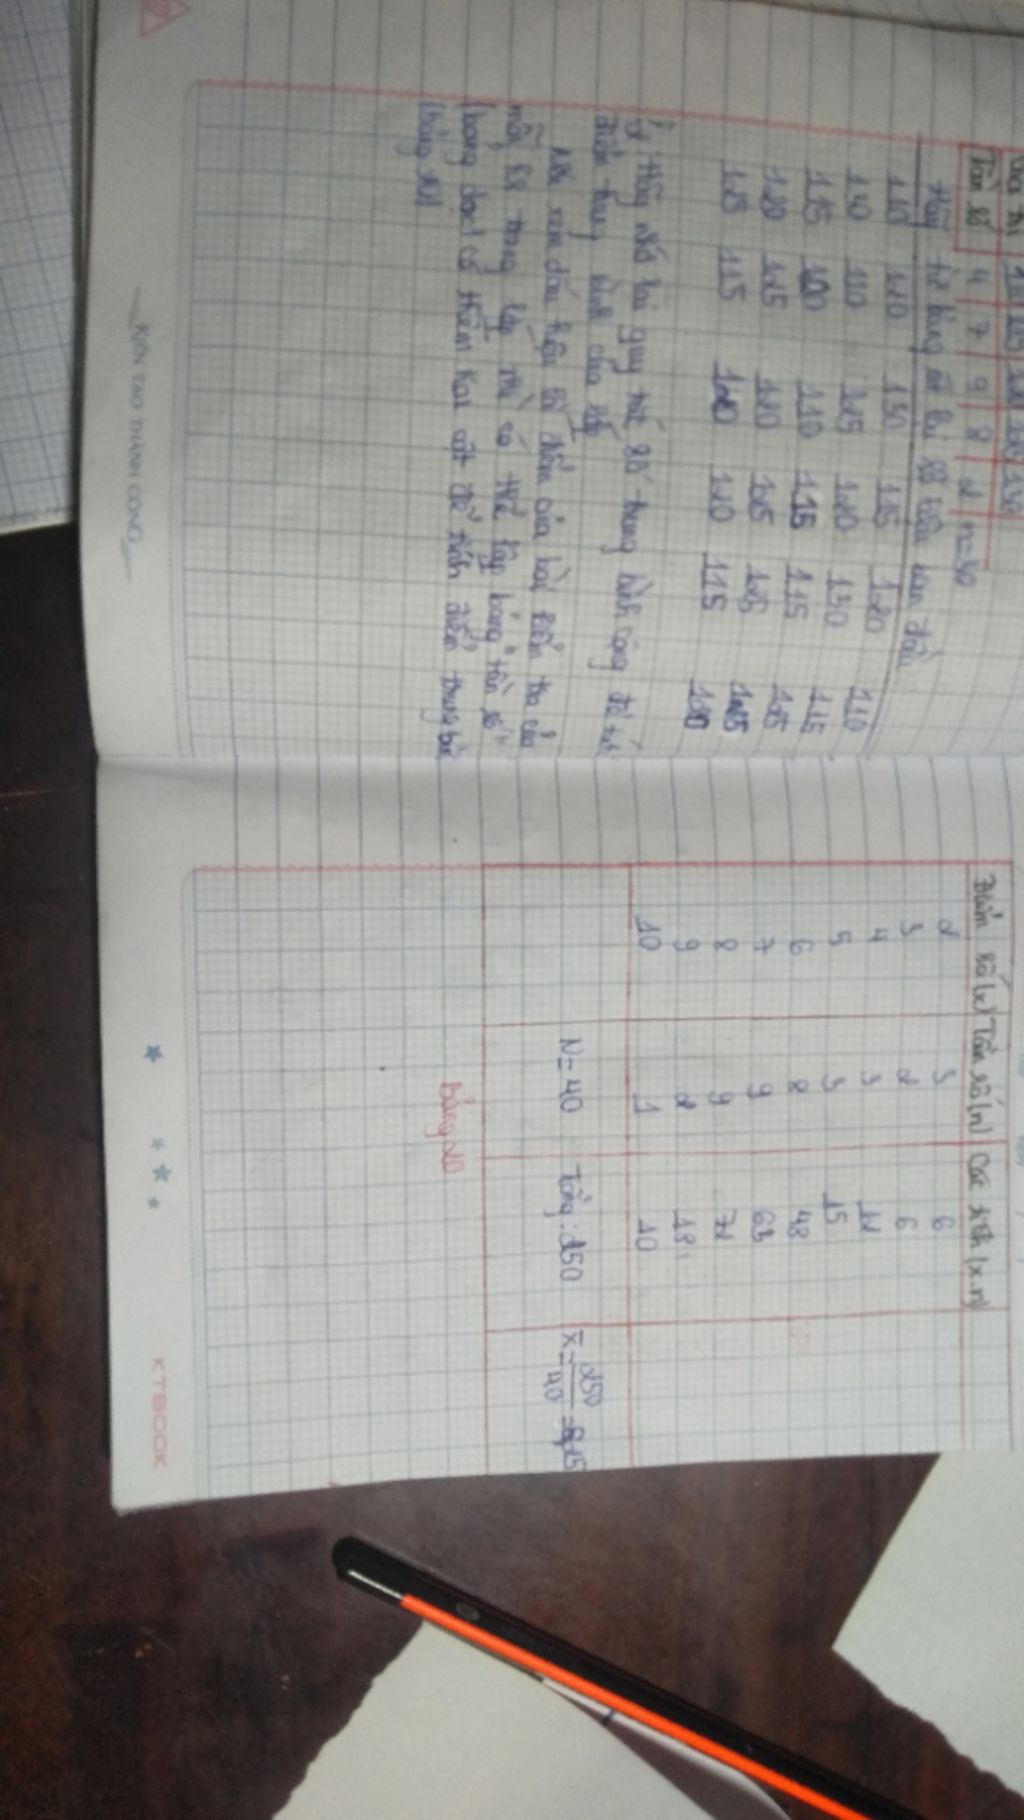 Tần số 4 7 9 8 2 n=30
Hãy từ bảng
110 120 130 125 120 110
110 110 125 120 130 115
115 120 110 115 115 125
120 125 120 125 125 125
125 115 120 120 115 120
Hãy nhớ lại quy tắc số trung bình cộng để tính
điểm trung bình của lớp
Nếu xem dấu hiệu là điểm của bài kiểm tra của
mỗi hs trong lớp thì có thể lập bảng "tần số"
(bảng dọc) có thêm hai cột để tính điểm trung bình
(bảng 20)
KIẾN TẠO THÀNH CÔNG
Điểm số (x) Tần số (n) Các tích (x.n)
2 3 6
3 2 6
4 3 12
5 3 15
6 8 48
7 9 63
8 9 72
9 2 18
10 1 10
N=40 Tổng: 250 X̄=250/40=6,25
Bảng 20
KTBOOK